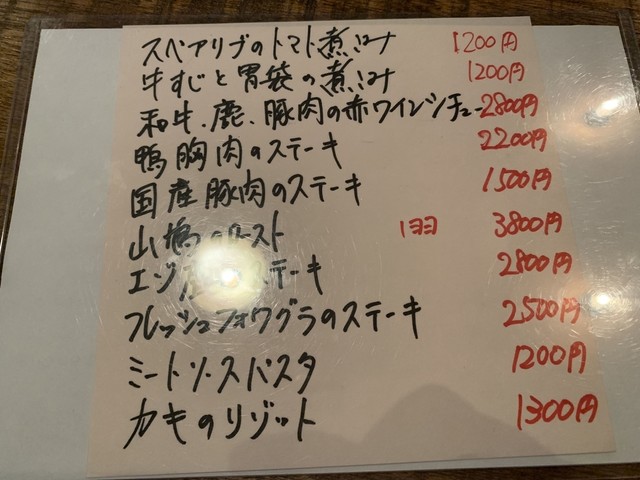 スペアリブのトマト煮込み 1200円
牛すじと胃袋の煮込み 1200円
和牛、鹿、豚肉の赤ワインシチュー 2800円
鴨胸肉のステーキ 2200円
国産豚肉のステーキ 1500円
山鳩のロースト 1羽 3800円
エゾ ステーキ 2800円
フレッシュフォワグラのステーキ 2500円
ミートソースパスタ 1200円
カキのリゾット 1300円